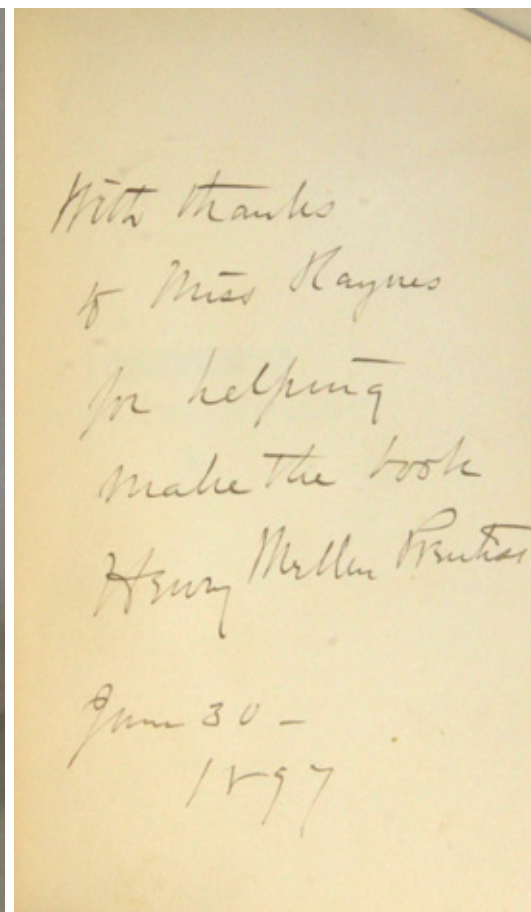 With thanks
to Miss Raynes
for helping
make the book
Henry Mellen Prentiss
June 30 –
1897